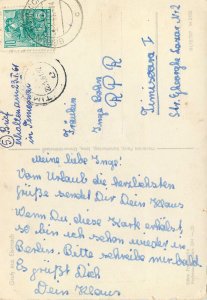 Fräulein
Inge
RPR
Timisoara I
Str. Gheorghe Lazar Nr 2
Brief
erhalten am
in Timisoara
Meine liebe Inge!
Vom Urlaub die herzlichsten
Grüße sendet Dir Dein Klaus
Wenn Du diese Karte erhälst,
so bin ich schon wieder in
Berlin. Bitte schreibe mir bald.
Es grüßt Dich
Dein Klaus